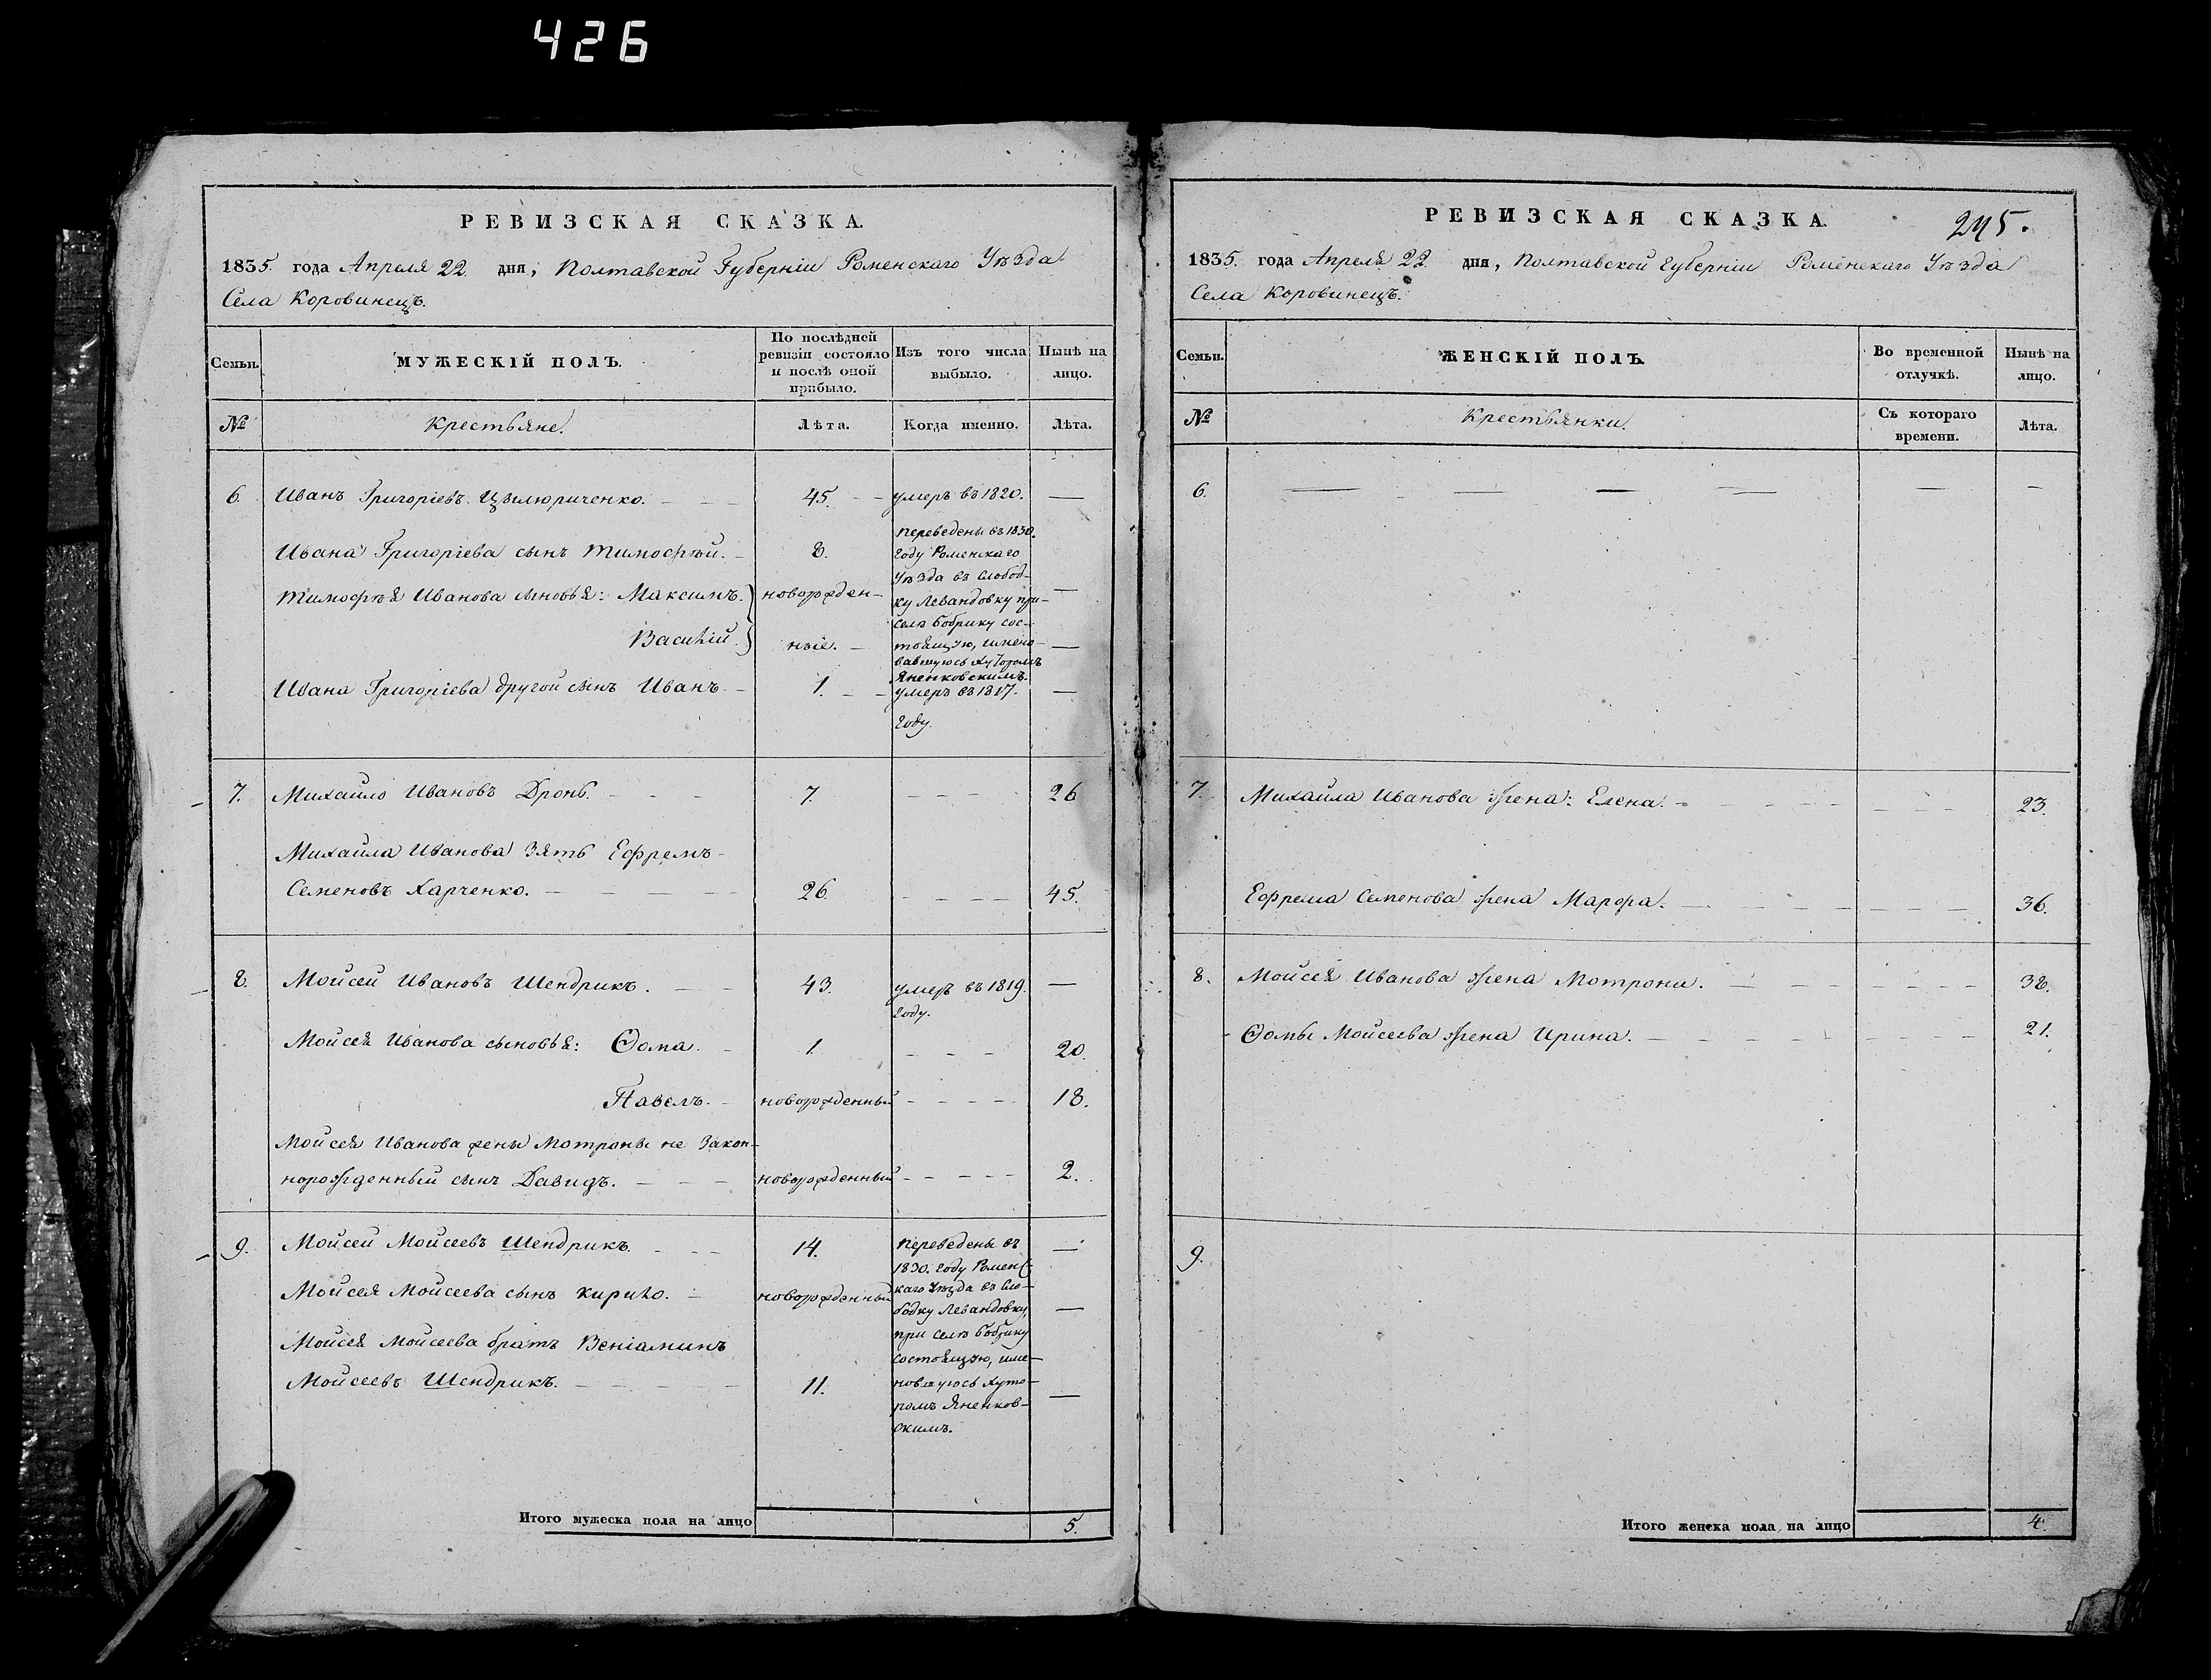 426
РЕВИЗСКАЯ СКАЗКА.
1835. года Апреля 22. дня, Полтавской Губерніи Роменскаго Уѣзда
Села Коровинецъ.
Семьи.
МУЖЕСКІЙ ПОЛЪ.
По послѣдней
ревизіи состояло
и послѣ оной
прибыло.
Изъ того числа
выбыло.
Нынѣ на
лицо.
№
Крестьяне.
Лѣта.
Когда именно.
Лѣта.
6. Иванъ Григоріевъ 45. умеръ въ 1820. —
Ивана Григоріева сынъ Тимофѣй. 8.
Тимофѣя Иванова сыновья: Максимъ. новорожден- —
Василій. ные. —
переведены въ 1830.
году Роменскаго
Уѣзда въ слобод-
ку Левандовку при
селѣ Бобрику сос-
тоящую, имено-
вавшуюсь Хуторомъ
Яненковскимъ.
Ивана Григоріева другой сынъ Иванъ. 1. умеръ въ 1817. —
году.
7. Михайло Ивановъ Дронь. 7. 26
Михайла Иванова зять Ефремъ
Семеновъ Харченко. 26. 45.
8. Мойсей Ивановъ Шендрикъ. 43. умеръ въ 1819. —
году.
Мойсея Иванова сыновья: Ѳома. 1. 20.
Павелъ. новорожденный 18.
Мойсея Иванова жены Мотроны не закон-
норожденный сынъ Давидъ. новорожденный 2.
9. Мойсей Мойсеевъ Шендрикъ. 14. —
Мойсея Мойсеева сынъ Кирило. новорожденный —
Мойсея Мойсеева братъ Веніаминъ
Мойсеевъ Шендрикъ. 11. —
переведены въ
1830. году Роменс-
каго Уѣзда въ Сло-
бодку Левандовку,
при селѣ Бобрику
состоящую, име-
новшуюсь Хуто-
ромъ Яненков-
скимъ.
Итого мужеска пола на лицо 5.
РЕВИЗСКАЯ СКАЗКА.
245.
1835. года Апреля 22. дня, Полтавской Губерніи Роменскаго Уѣзда
Села Коровинецъ.
Семьи.
ЖЕНСКІЙ ПОЛЪ.
Во временной
отлучкѣ.
Нынѣ на
лицо.
№
Крестьянки.
Съ котораго
времени.
Лѣта.
6. — — — — — —
7. Михайла Иванова жена: Елена. 23.
Ефрема Семенова жена Марфа. 36.
8. Мойсея Иванова жена Мотрона. 38.
Ѳомы Мойсеева жена Ирина. 21.
9.
Итого женска пола на лицо 4.